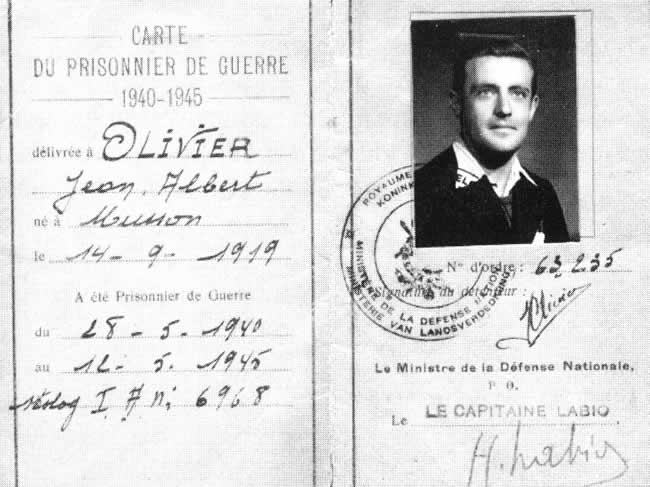 CARTE
DU PRISONNIER DE GUERRE
1940-1945
délivrée à OLIVIER
Jean. Albert
né à Musson
le 14 - 9 - 1919
A été Prisonnier de Guerre
du 28 - 5 - 1940
au 12 - 5. 1945
Stalag I A n: 6968
ROYAUME
KONINK
MINISTÈRE DE LA DÉFENSE
MINISTERIE VAN LANDSVERDEDIGING
N° d'ordre : 63.235
Signature du détenteur :
Olivier
Le Ministre de la Défense Nationale,
P. O.
Le LE CAPITAINE LABIO
H. Labio